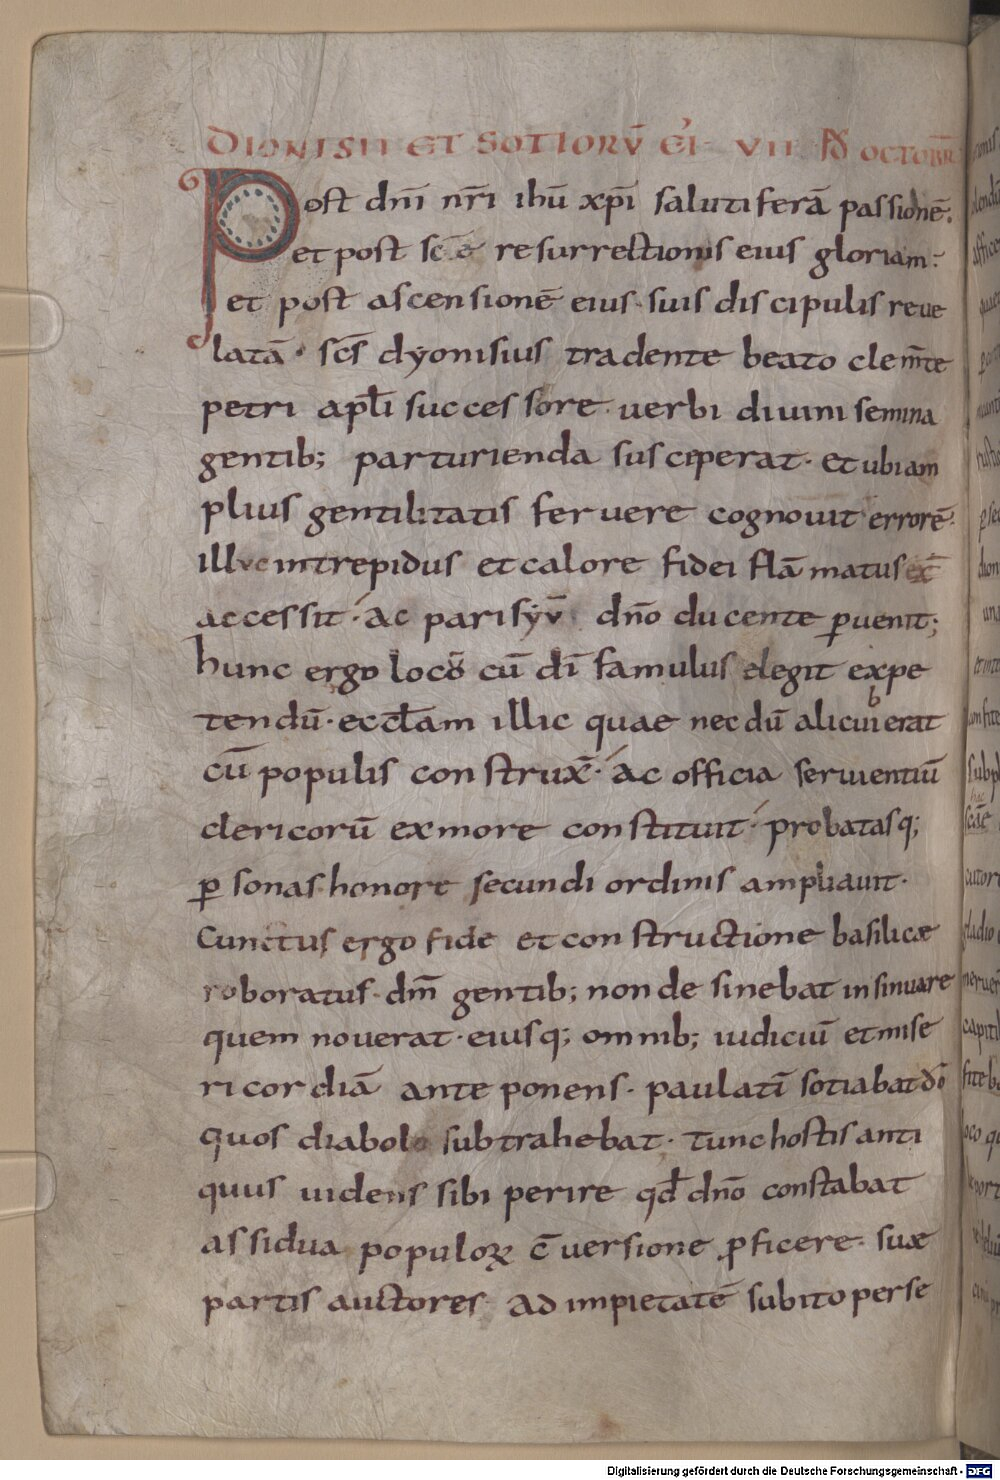 DIONISII ET SOTIORṼ EI VII ID OCTOBR̄
Post dñi nr̄i ihū xp̄i salutiferā passionē.
et post sc̄e resurrectionis eius gloriam:
et post ascensionē eius suis discipulis reue
latā· sc̄s dyonisius tradente beato clem̄te
petri apl̄i successore uerbi diuini semina
gentib; parturienda susceperat· et ubi am
plius gentilitatis feruere cognouit errorē·
illuc intrepidus et calore fidei flāmatus
accessit· ac parisyv̄ dn̄o ducente ꝑuenit;
hunc ergo locū cū dī famulus elegit expe
tendū· eccl̄am illic quae necdū alicubi erat
cū populis construx̄· ac officia seruientiū
clericorū ex more constituit· probatasq;
ꝑsonas honore secundi ordinis ampliauit·
Cunctus ergo fide et constructione basilicæ
roboratus· dm̄ gentib; non desinebat insinuare
quem nouerat· eiusq; omnib; iudiciū et mise
ricordiā anteponens· paulatī sotiabat dō
quos diabolo subtrahebat· Tunc hostis anti
quus uidens sibi perire qd̄ dn̄o constabat
assidua populoꝝ c̄uersione ꝓficere· suæ
partis auctores ad impietatē subito perse
Digitalisierung gefördert durch die Deutsche Forschungsgemeinschaft - DFG